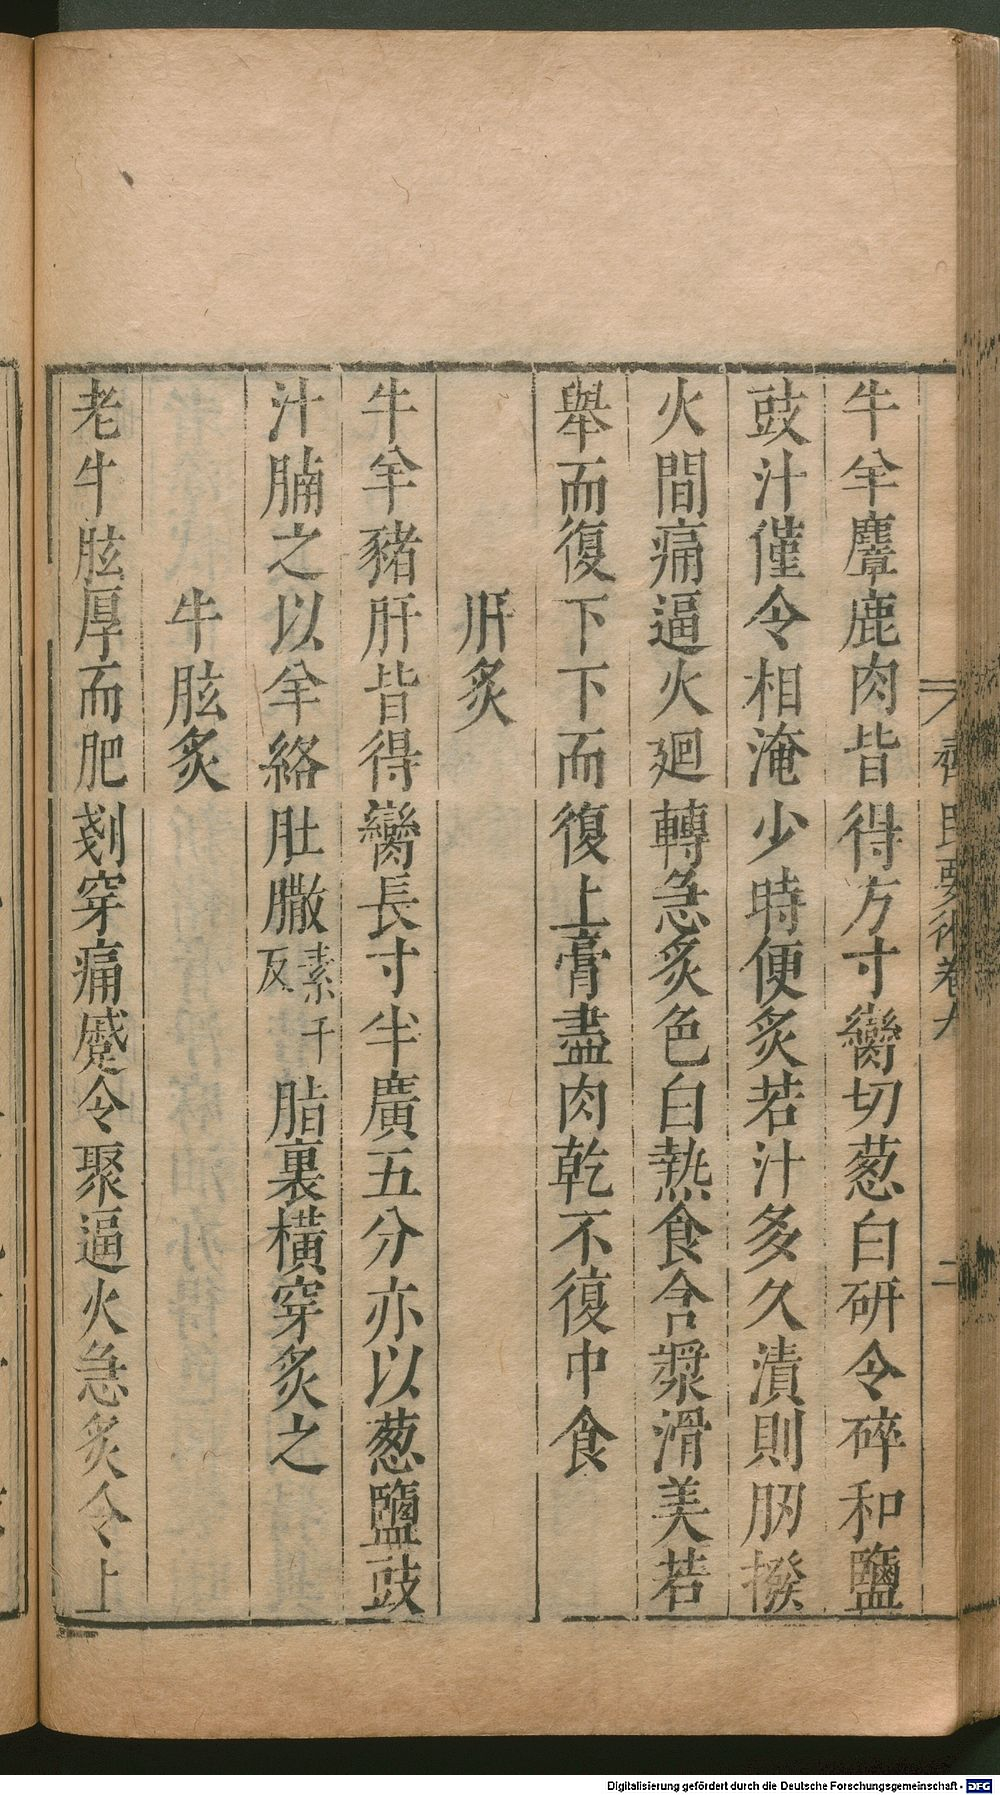 齊民要術卷九
二
牛羊麞鹿肉皆得方寸臠切葱白研令碎和鹽
豉汁僅令相淹少時便炙若汁多久漬則肕撥
火開痛逼火廻轉急炙色白熱食含漿滑美若
舉而復下下而復上膏盡肉乾不復中食
肝炙
牛羊豬肝皆得臠長寸半廣五分亦以葱鹽豉
汁腩之以羊絡肚䐿素千反脂裏橫穿炙之
牛胘炙
老牛胘厚而肥剗穿痛蹙令聚逼火急炙令上
Digitalisierung gefördert durch die Deutsche Forschungsgemeinschaft - DFG